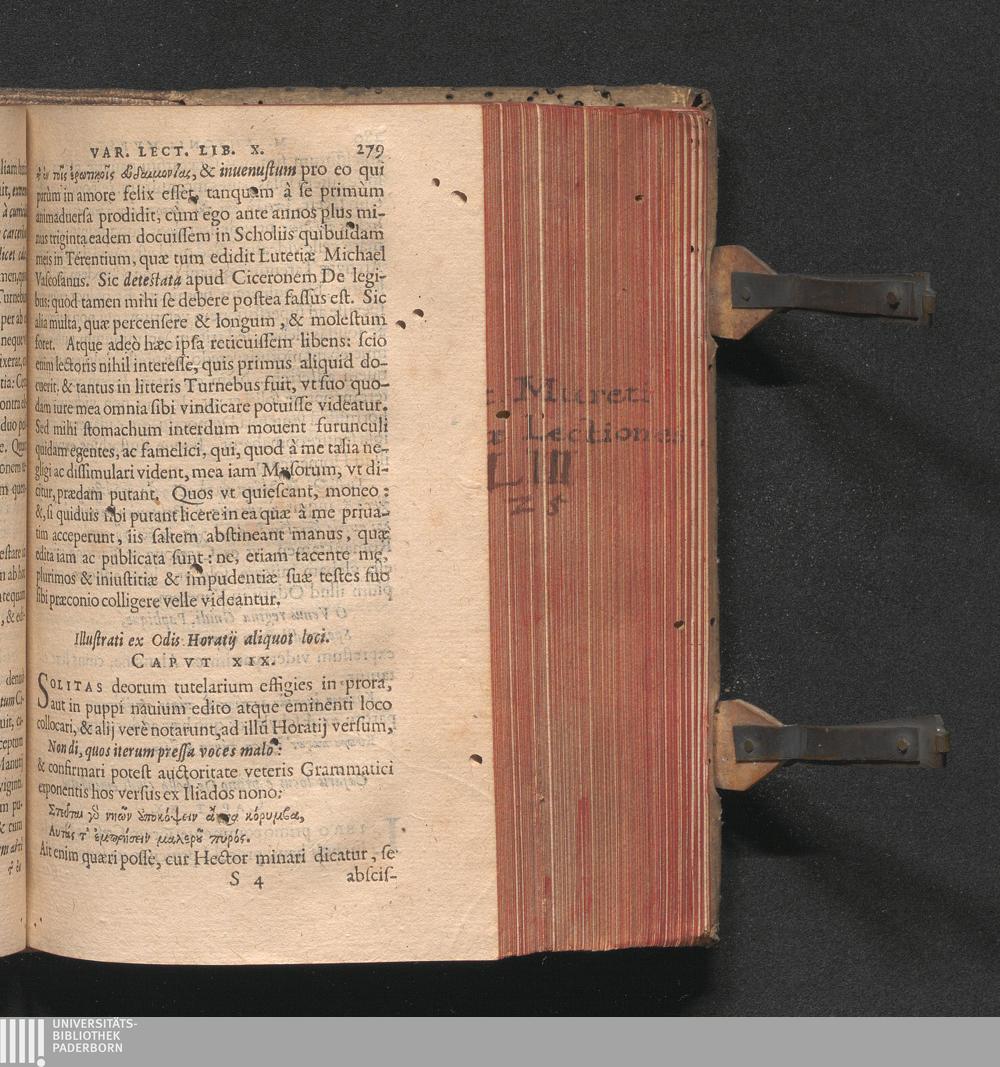 VAR. LECT. LIB. X. 279
τοῖς ἐρωτικοῖς εὐδαιμονίας, & inuenuſtum pro eo qui
parùm in amore felix eſſet, tanquam à ſe primùm
animaduerſa prodidit, cùm ego ante annos plus mi-
nus triginta eadem docuiſſem in Scholiis quibuſdam
meis in Terentium, quæ tum edidit Lutetiæ Michael
Vaſcoſanus. Sic deteſtata apud Ciceronem De legi-
bus: quòd tamen mihi ſe debere poſtea faſſus eſt. Sic
alia multa, quæ percenſere & longum, & moleſtum
foret. Atque adeò hæc ipſa reticuiſſem libens: ſcio
enim lectoris nihil intereſſe, quis primus aliquid do-
cuerit, & tantus in litteris Turnebus fuit, vt ſuo quo-
dam iure mea omnia ſibi vindicare potuiſſe videatur.
Sed mihi ſtomachum interdum mouent furunculi
quidam egentes, ac famelici, qui, quod à me talia ne-
gligi ac diſſimulari vident, mea iam Muſorum, vt di-
citur, prædam putant. Quos vt quieſcant, moneo:
&, ſi quiduis ſibi putant licere in ea quæ à me priua-
tim acceperunt, iis ſaltem abſtineant manus, quæ
edita iam ac publicata ſunt: ne, etiam tacente me,
plurimos & iniuſtitiæ & impudentiæ ſuæ teſtes ſuo
ſibi præconio colligere velle videantur.
Illuſtrati ex Odis Horatij aliquot loci.
CAPVT XIX.
SOLITAS deorum tutelarium effigies in prora,
aut in puppi nauium edito atque eminenti loco
collocari, & alij verè notarunt, ad illũ Horatij verſum,
Non di, quos iterum preſſa voces malo:
& confirmari poteſt auctoritate veteris Grammatici
exponentis hos verſus ex Iliados nono:
Στεῦται γὸ νηῶν ἀποκόψειν ἄκρα κόρυμβα,
Αυτάς τ' ἐμπρήσειν μαλεροῦ πυρός.
Ait enim quæri poſſe, cur Hector minari dicatur, ſe
S 4 abſciſ-
Mureti
Lectiones
LIII
25
UNIVERSITÄTS-
BIBLIOTHEK
PADERBORN